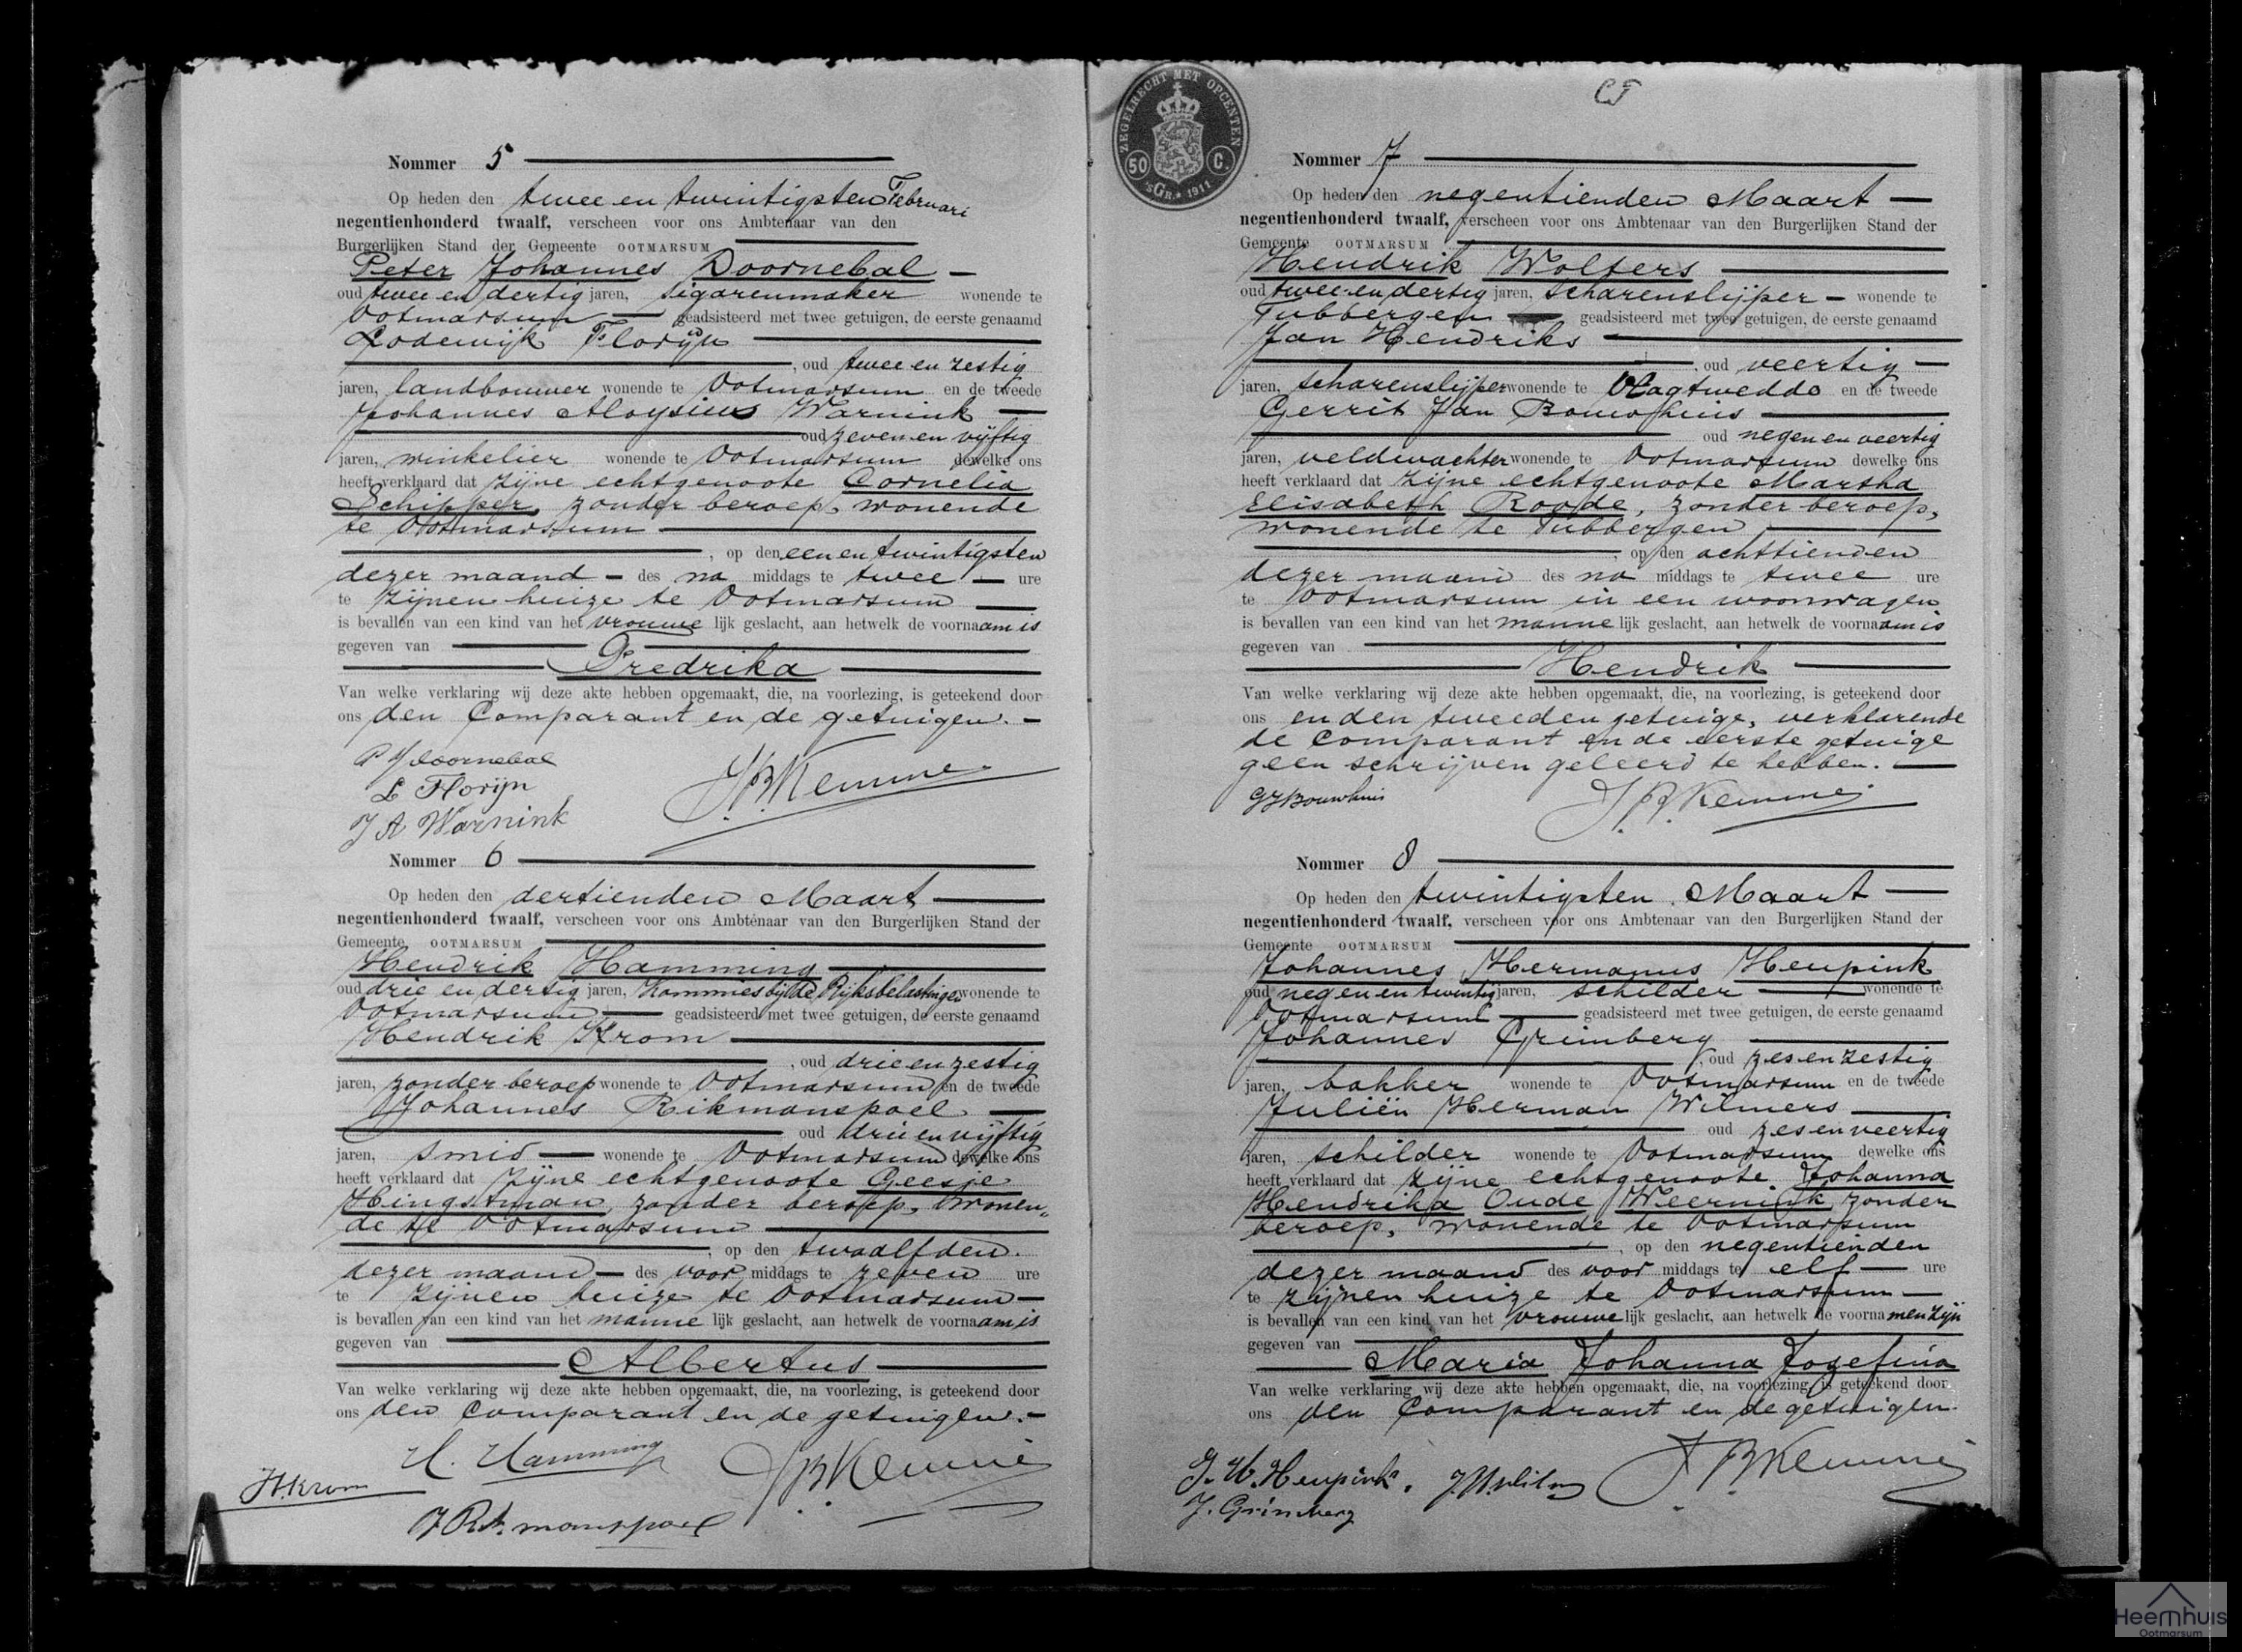 Nommer 5
Op heden den twee en twintigsten Februari
negentienhonderd twaalf, verscheen voor ons Ambtenaar van den
Burgerlijken Stand der Gemeente OOTMARSUM
Peter Johannes Doornebal
oud twee en dertig jaren, sigarenmaker wonende te
Ootmarsum geadsisteerd met twee getuigen, de eerste genaamd
Lodewijk Florijn
, oud twee en zestig
jaren, landbouwer wonende te Ootmarsum en de tweede
Johannes Aloysius Warnink
oud zeven en vijftig
jaren, winkelier wonende te Ootmarsum dewelke ons
heeft verklaard dat zijne echtgenoote Cornelia
Schipper, zonder beroep, wonende
te Ootmarsum
, op den een en twintigsten
dezer maand des na middags te twee ure
te zijnen huize te Ootmarsum
is bevallen van een kind van het vrouwe lijk geslacht, aan hetwelk de voornaam is
gegeven van
Fredrika
Van welke verklaring wij deze akte hebben opgemaakt, die, na voorlezing, is geteekend door
ons den Comparant en de getuigen.
P J Doornebal
L Florijn
J A Warnink
J.B. Kemme
Nommer 6
Op heden den dertienden Maart
negentienhonderd twaalf, verscheen voor ons Ambtenaar van den Burgerlijken Stand der
Gemeente OOTMARSUM
Hendrik Hamming
oud drie en dertig jaren, Kommies bij de Rijksbelastingen wonende te
Ootmarsum geadsisteerd met twee getuigen, de eerste genaamd
Hendrik Krom
, oud drie en zestig
jaren, zonder beroep wonende te Ootmarsum en de tweede
Johannes Rikmanspoel
oud drie en vijftig
jaren, smid wonende te Ootmarsum dewelke ons
heeft verklaard dat zijne echtgenoote Geesje
Hingstman, zonder beroep, wonen„
de te Ootmarsum
, op den twaalfden
dezer maand des voor middags te zeven ure
te zijnen huize te Ootmarsum
is bevallen van een kind van het manne lijk geslacht, aan hetwelk de voornaam is
gegeven van
Albertus
Van welke verklaring wij deze akte hebben opgemaakt, die, na voorlezing, is geteekend door
ons den Comparant en de getuigen.
H. Hamming
J.B. Kemme
H. Krom
J Rikmanspoel
ZEGELRECHT MET OPCENTEN
50 C.
'sGR. 1911
Nommer 7
Op heden den negentienden Maart
negentienhonderd twaalf, verscheen voor ons Ambtenaar van den Burgerlijken Stand der
Gemeente OOTMARSUM
Hendrik Wolfers
oud twee en dertig jaren, scharenslijper wonende te
Tubbergen geadsisteerd met twee getuigen, de eerste genaamd
Jan Hendriks
, oud veertig
jaren, scharenslijper wonende te Vlagtwedde en de tweede
Gerrit Jan Bouwhuis
oud negen en veertig
jaren, veldwachter wonende te Ootmarsum dewelke ons
heeft verklaard dat zijne echtgenoote Martha
Elisabeth Roode, zonder beroep,
wonende te Tubbergen
, op den achttienden
dezer maand des na middags te twee ure
te Ootmarsum in een woonwagen
is bevallen van een kind van het manne lijk geslacht, aan hetwelk de voornaam is
gegeven van
Hendrik
Van welke verklaring wij deze akte hebben opgemaakt, die, na voorlezing, is geteekend door
ons en den tweeden getuige, verklarende
de Comparant en de eerste getuige
geen schrijven geleerd te hebben.
GJ Bouwhuis
J.B. Kemme
Nommer 8
Op heden den twintigsten Maart
negentienhonderd twaalf, verscheen voor ons Ambtenaar van den Burgerlijken Stand der
Gemeente OOTMARSUM
Johannes Hermanus Heupink
oud negen en twintig jaren, schilder wonende te
Ootmarsum geadsisteerd met twee getuigen, de eerste genaamd
Johannes Grimberg
, oud zes en zestig
jaren, bakker wonende te Ootmarsum en de tweede
Juliën Herman Wilmers
oud zes en veertig
jaren, schilder wonende te Ootmarsum dewelke ons
heeft verklaard dat zijne echtgenoote Johanna
Hendrika Oude Weernink zonder
beroep, wonende te Ootmarsum
, op den negentienden
dezer maand des voor middags te elf ure
te zijnen huize te Ootmarsum
is bevallen van een kind van het vrouwe lijk geslacht, aan hetwelk de voornamen zijn
gegeven van
Maria Johanna Josefina
Van welke verklaring wij deze akte hebben opgemaakt, die, na voorlezing, is geteekend door
ons den Comparant en de getuigen.
J. H. Heupink.
J.B. Kemme
J. Grimberg
Heemhuis
Ootmarsum